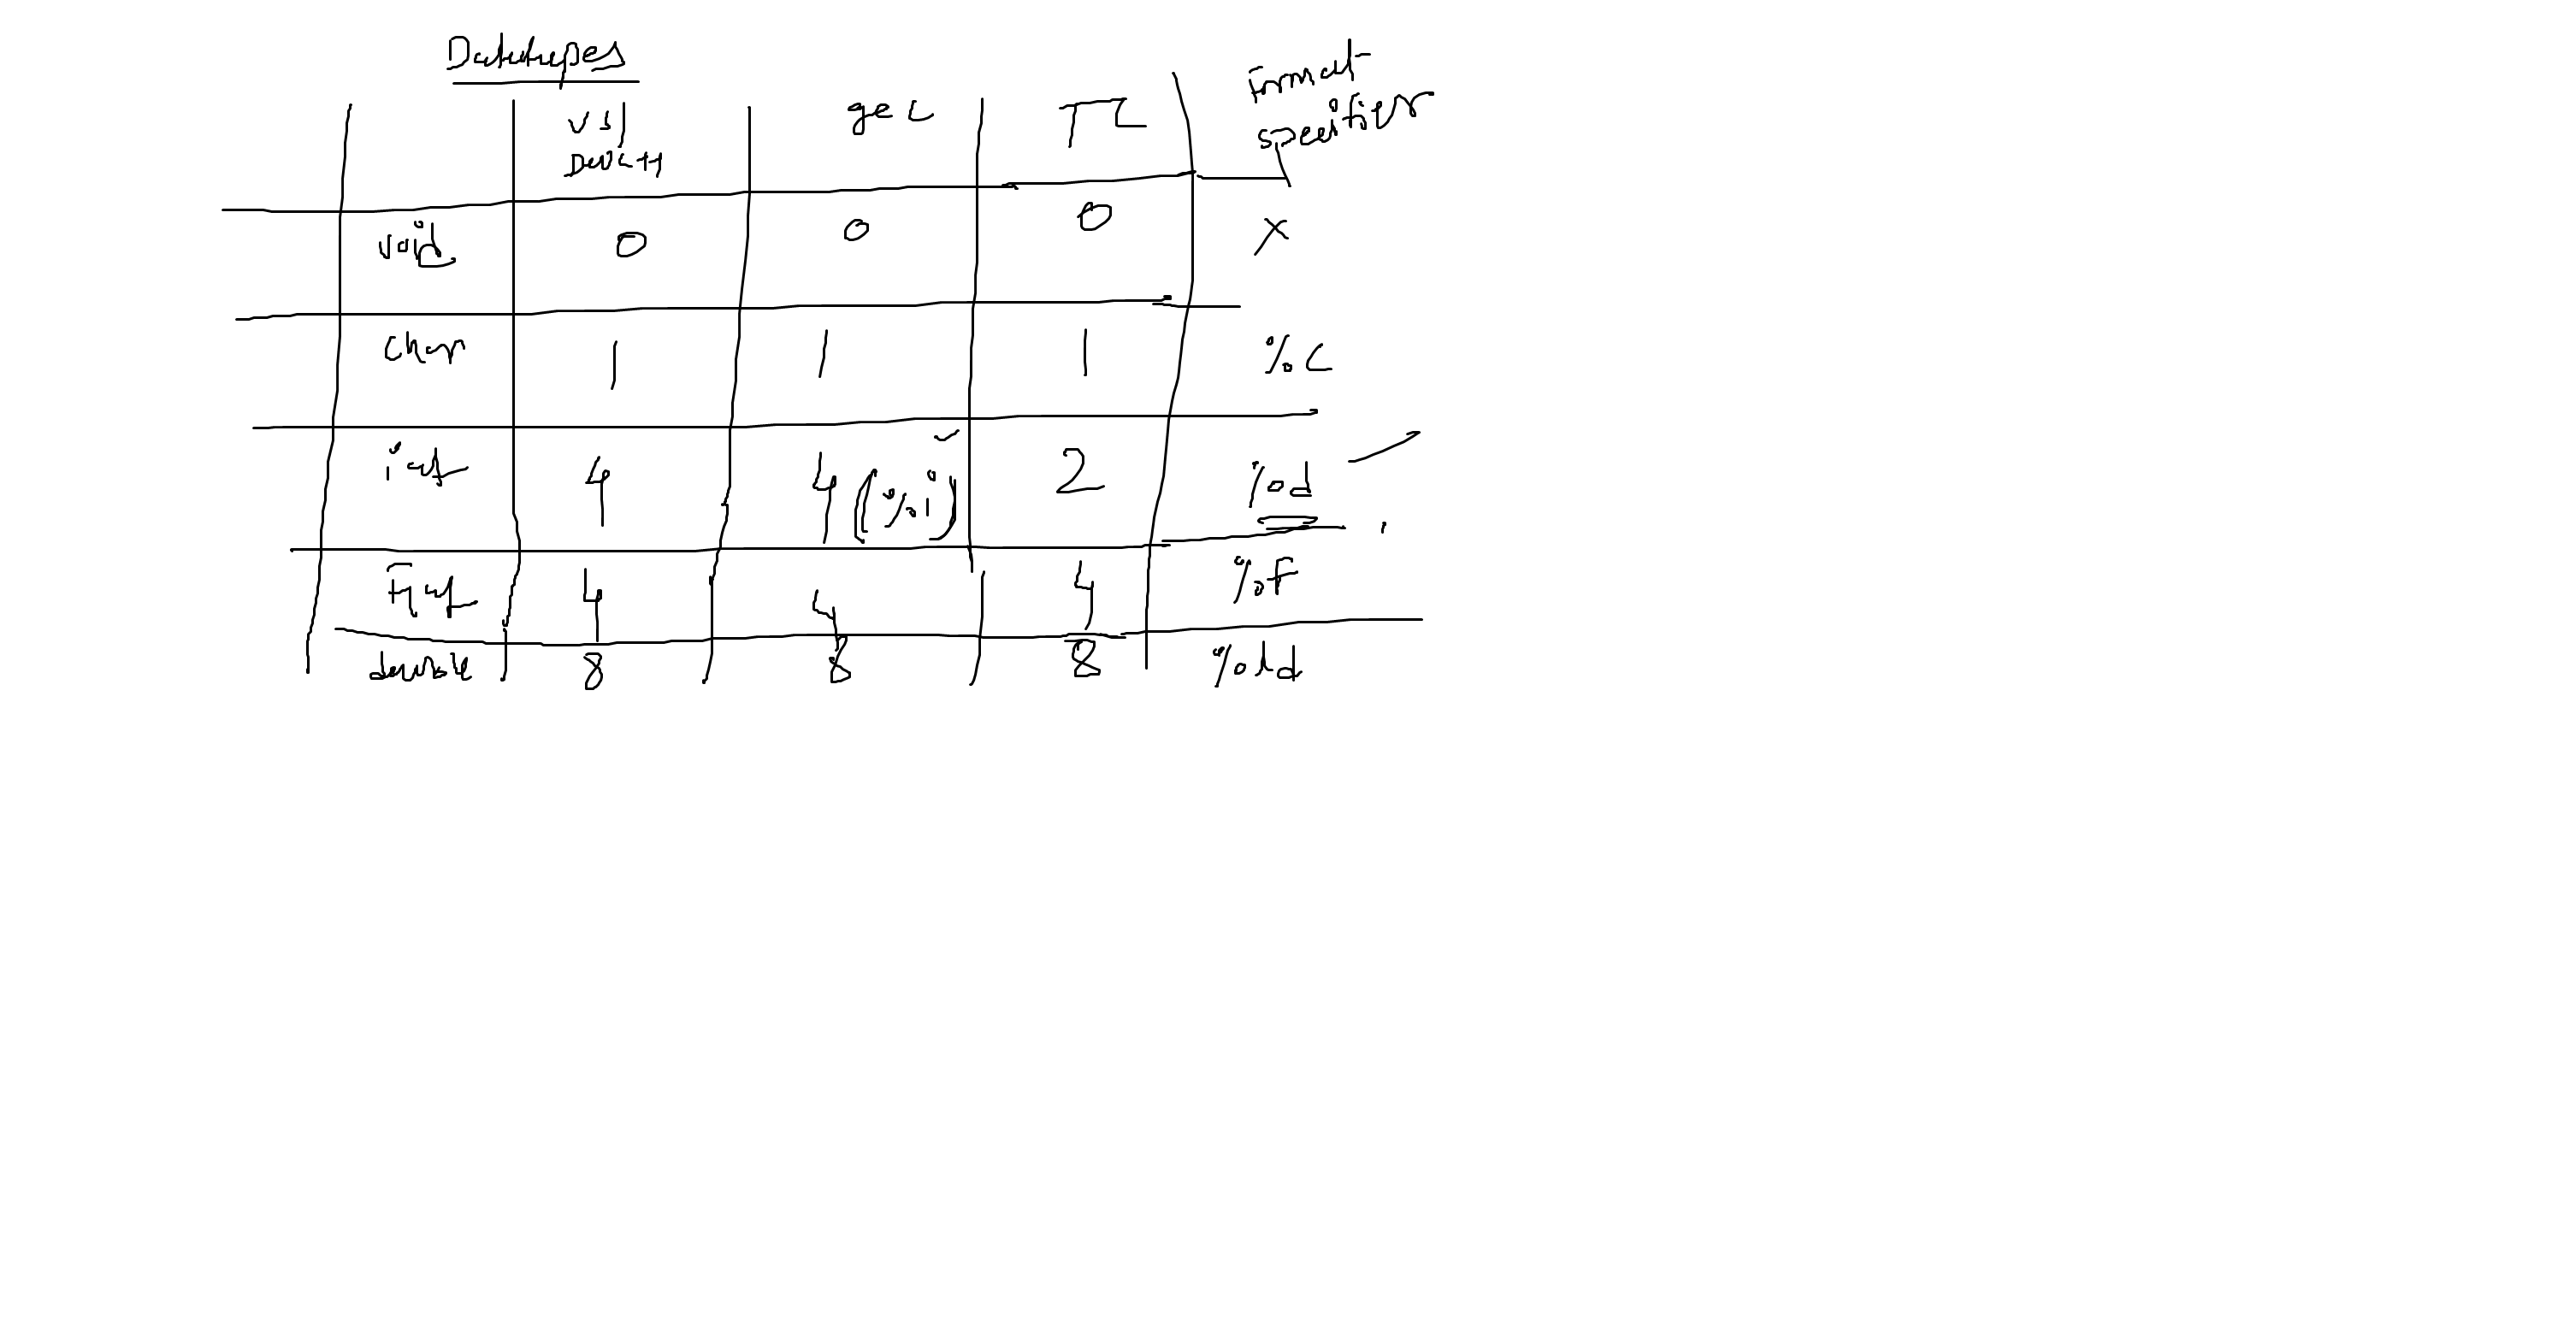 Datatypes
vs| gcc TC Format
Dev C++ specifier
void 0 0 0 X
char 1 1 1 %c
int 4 4 (%i) 2 %d
Float 4 4 4 %F
double 8 8 8 %ld